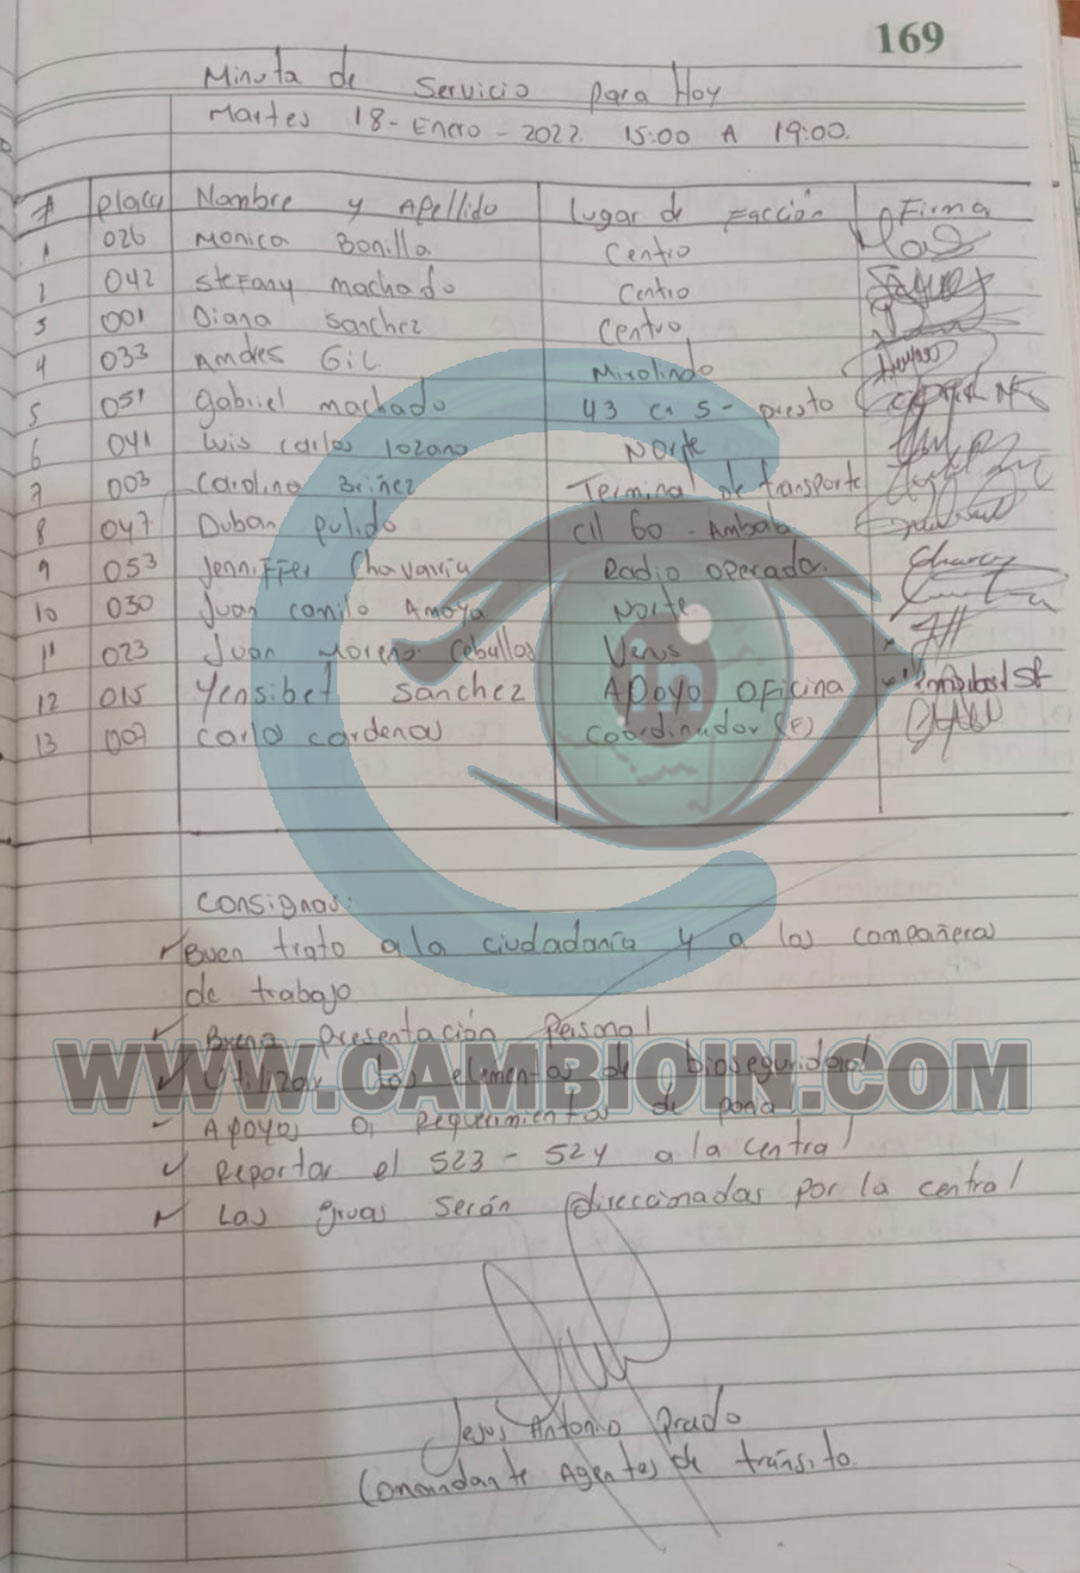 169
Minuta de Servicio para Hoy
Martes 18-Enero-2022. 15:00 A 19:00.
# placa Nombre y Apellido Lugar de Facción Firma
1 026 Monica Bonilla. Centro
2 042 Stefany machado Centro
3 001 Diana Sanchez Centro
4 033 Andres Gil Mirolindo
5 051 Gabriel machado 43 cr 5 - puesto
6 041 Luis Carlos lozano Norte
7 003 Carolina Briñez Terminal de transporte
8 047 Duban pulido Cll 60 - Ambala
9 053 Jenniffer Chavarria Radio operador.
10 030 Juan Camilo Amaya Norte
11 023 Juan Moreno Ceballos Venus
12 015 Yensibet Sanchez Apoyo oficina
13 007 Carlos Cardenas Coordinador (E)
in
Consignas:
Buen trato a la ciudadanía y a los compañeros
de trabajo
Buena presentación Personal
Utilizar los elementos de bioseguridad
WWW.CAMBIOIN.COM
Apoyos a requerimientos de ponal
Reportar el 523 - 524 a la central
Las gruas serán direccionadas por la central
Jesus Antonio Prado
Comandante Agentes de tránsito.